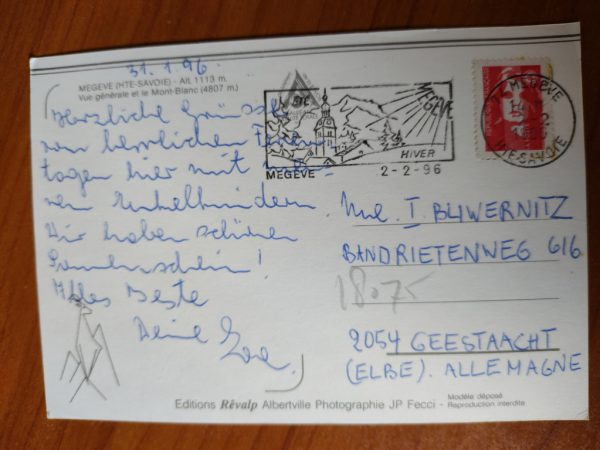 31.1.96.
MEGÈVE (HTE-SAVOIE) - Alt. 1113 m.
Vue générale et le Mont-Blanc (4807 m.)
Herzliche Grüsse
von herrlichen Ferien
tagen hier mit
Enkelkindern.
Wir haben schönen
Sonnenschein!
Alles Beste
Deine
MEGEVE
HIVER
2-2-96
MEGÈVE
HTE SAVOIE
Mme. I. BLIWERNITZ
BANDRIETENWEG 616
18075
2054 GEESTAACHT
(ELBE). ALLEMAGNE
Editions Rêvalp Albertville Photographie JP Fecci -
Modèle déposé
Reproduction interdite